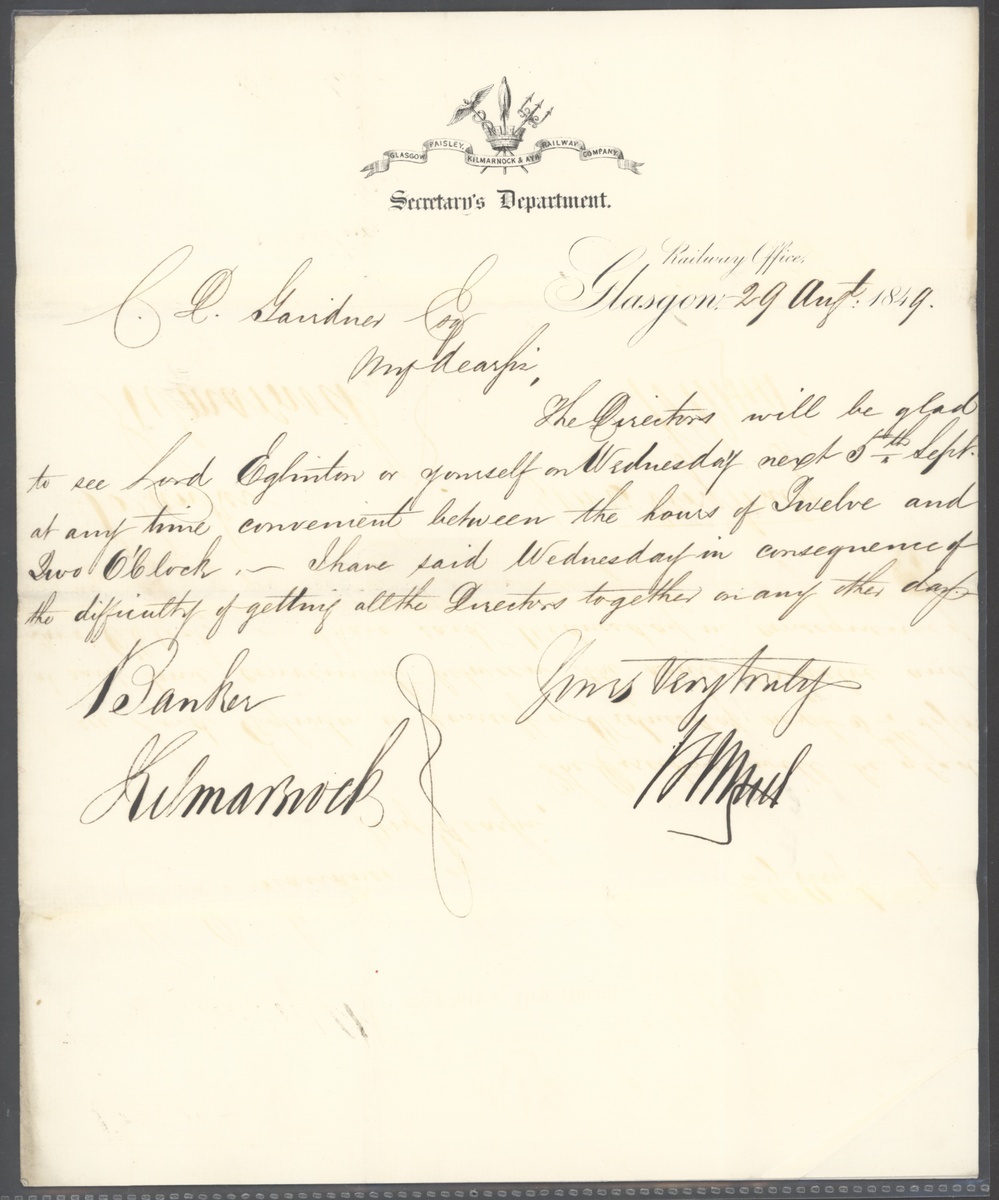 GLASGOW PAISLEY, KILMARNOCK & AYR RAILWAY COMPANY
Secretary's Department.
Railway Office,
Glasgow, 29 Augt. 1849.
C. D. Gairdner Esq
My dear Sir,
The Directors will be glad
to see Lord Eglinton or yourself on Wednesday next 5th Sept.
at any time convenient between the hours of Twelve and
Two O'Clock. — I have said Wednesday in consequence of
the difficulty of getting all the Directors together on any other day.
Yours Very truly
Banker
Kilmarnock